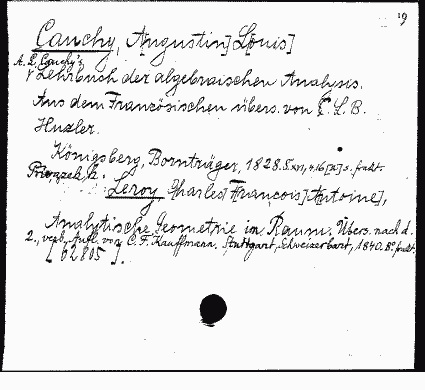 19
Cauchy, A[ugustin] L[ouis]
A. L. Cauchy's
Lehrbuch der algebraischen Analysis.
Aus dem Französischen übers. von C. L. B.
Huzler.
Königsberg, Bornträger, 1828. S. XVI, 416 [2] s. frakt.
Leroy Charles] François] Antoine],
Analytische Geometrie im Raum. Übers. nach d.
2., verb. Aufl. von C. F. Kauffmann. Stuttgart, Schweizerbart, 1840. 8° frakt.
[62805].